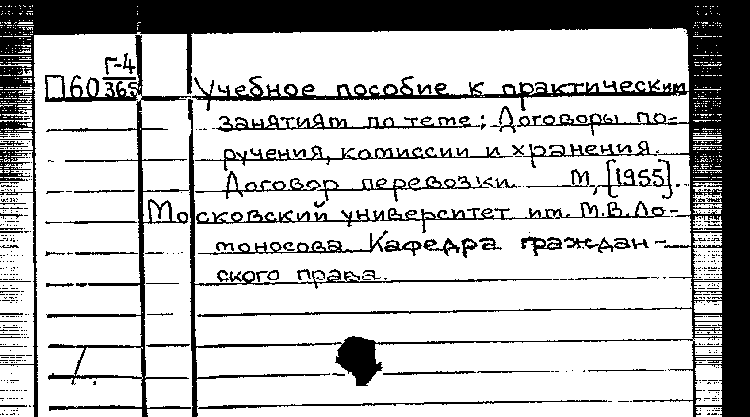 П60 Г-4/365 Учебное пособие к практическим
занятиям по теме: Договоры по-
ручения, комиссии и хранения.
Договор перевозки. М., [1955].
Московский университет им. М.В.Ло-
моносова. Кафедра граждан-
ского права.